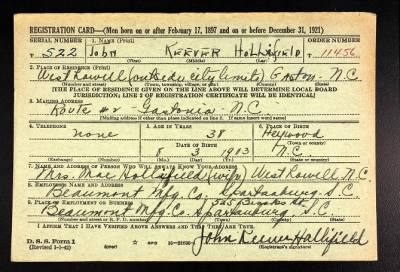 REGISTRATION CARD—(Men born on or after February 17, 1897 and on or before December 31, 1921)
SERIAL NUMBER 1. NAME (Print) ORDER NUMBER
T 522 John KEEVER Hollifield T 11456
(First) (Middle) (Last)
2. PLACE OF RESIDENCE (Print)
West Lowell (outside city limits) Gaston N.C.
(Number and street) (Town, township, village, or city) (County) (State)
[THE PLACE OF RESIDENCE GIVEN ON THE LINE ABOVE WILL DETERMINE LOCAL BOARD
JURISDICTION; LINE 2 OF REGISTRATION CERTIFICATE WILL BE IDENTICAL]
3. MAILING ADDRESS
Route #2 Gastonia N.C.
[Mailing address if other than place indicated on line 2. If same insert word same]
4. TELEPHONE 5. AGE IN YEARS 6. PLACE OF BIRTH
none 38 Heywood
DATE OF BIRTH (Town or county)
8 3 1903 N.C.
(Exchange) (Number) (Mo.) (Day) (Yr.) (State or country)
7. NAME AND ADDRESS OF PERSON WHO WILL ALWAYS KNOW YOUR ADDRESS
Mrs. Mae Hollifield (wife) West Lowell, N.C.
8. EMPLOYER'S NAME AND ADDRESS
Beaumont Mfg. Co. Spartanburg, S.C.
9. PLACE OF EMPLOYMENT OR BUSINESS
Beaumont Mfg. Co. Spartanburg, S.C.
(Number and street or R. F. D. number) (Town) (County) (State)
I AFFIRM THAT I HAVE VERIFIED ABOVE ANSWERS AND THAT THEY ARE TRUE.
D. S. S. Form 1
(Revised 1-1-42) (over)
John Keever Hollifield
(Registrant's signature)